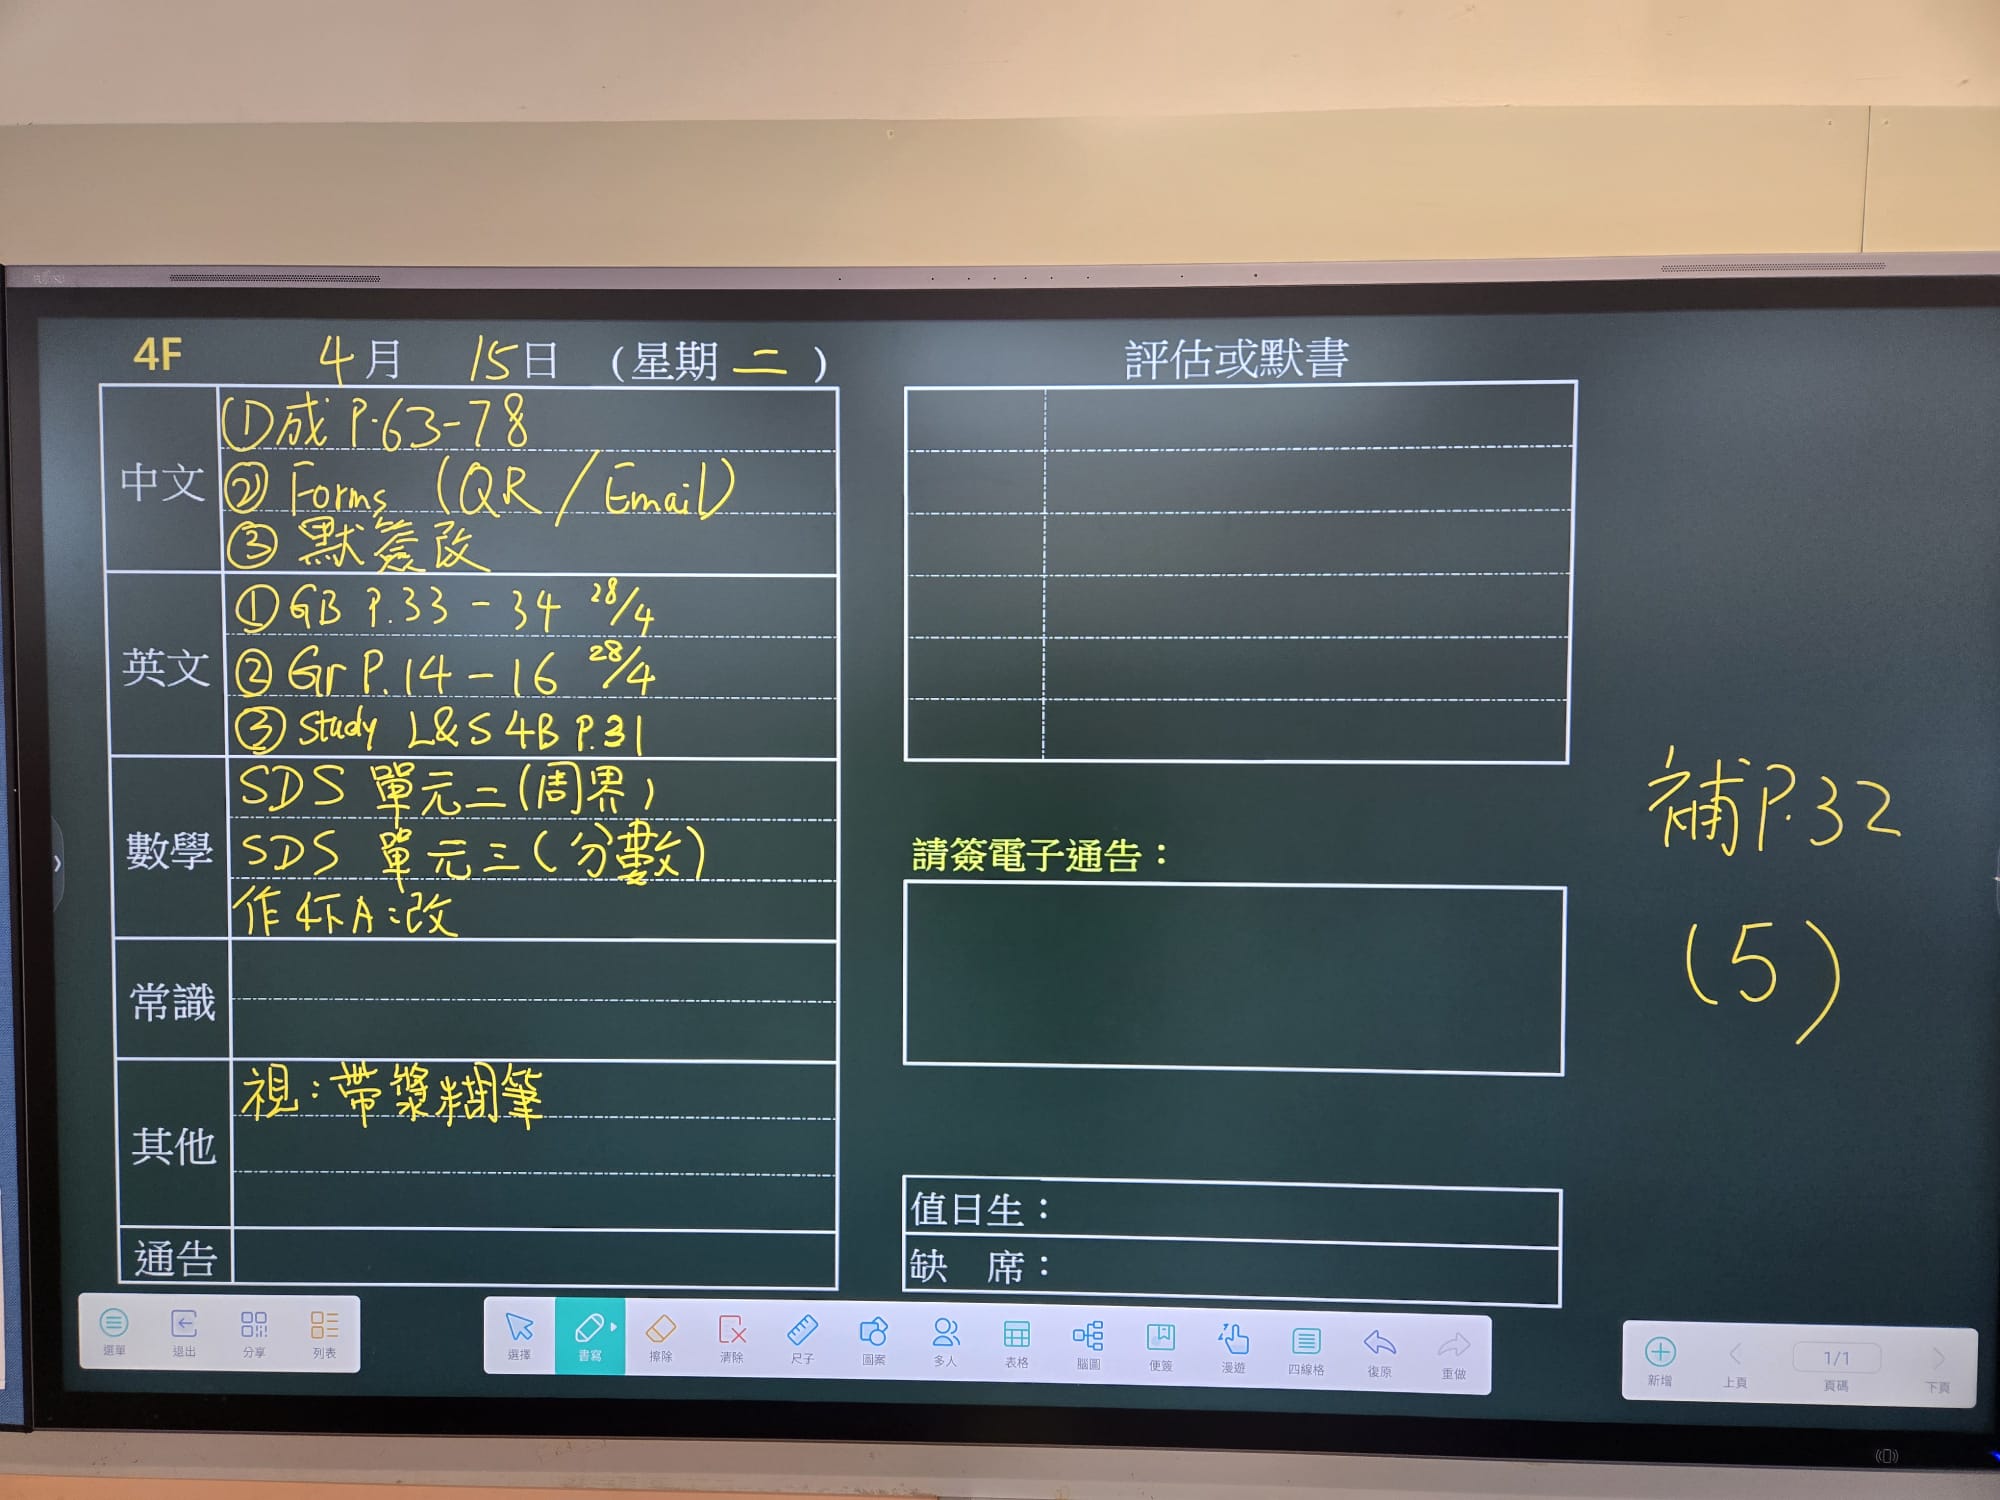 4F 4月 15日 (星期二)
中文
①成 P.63-78
② Forms (QR / Email)
③ 默簽改
英文
①GB P.33 - 34 28/4
②Gr P.14 - 16 28/4
③ Study L&S 4B P.31
數學
SDS 單元二(周界)
SDS 單元三(分數)
作 4下A:改
常識
其他
視:帶漿糊筆
通告
評估或默書
請簽電子通告:
值日生:
缺 席:
補P.32
(5)
選單 退出 分享 列表
選擇 書寫 擦除 清除 尺子 圖案 多人 表格 腦圖 便簽 漫遊 四線格 復原 重做
新增 上頁 1/1 頁碼 下頁